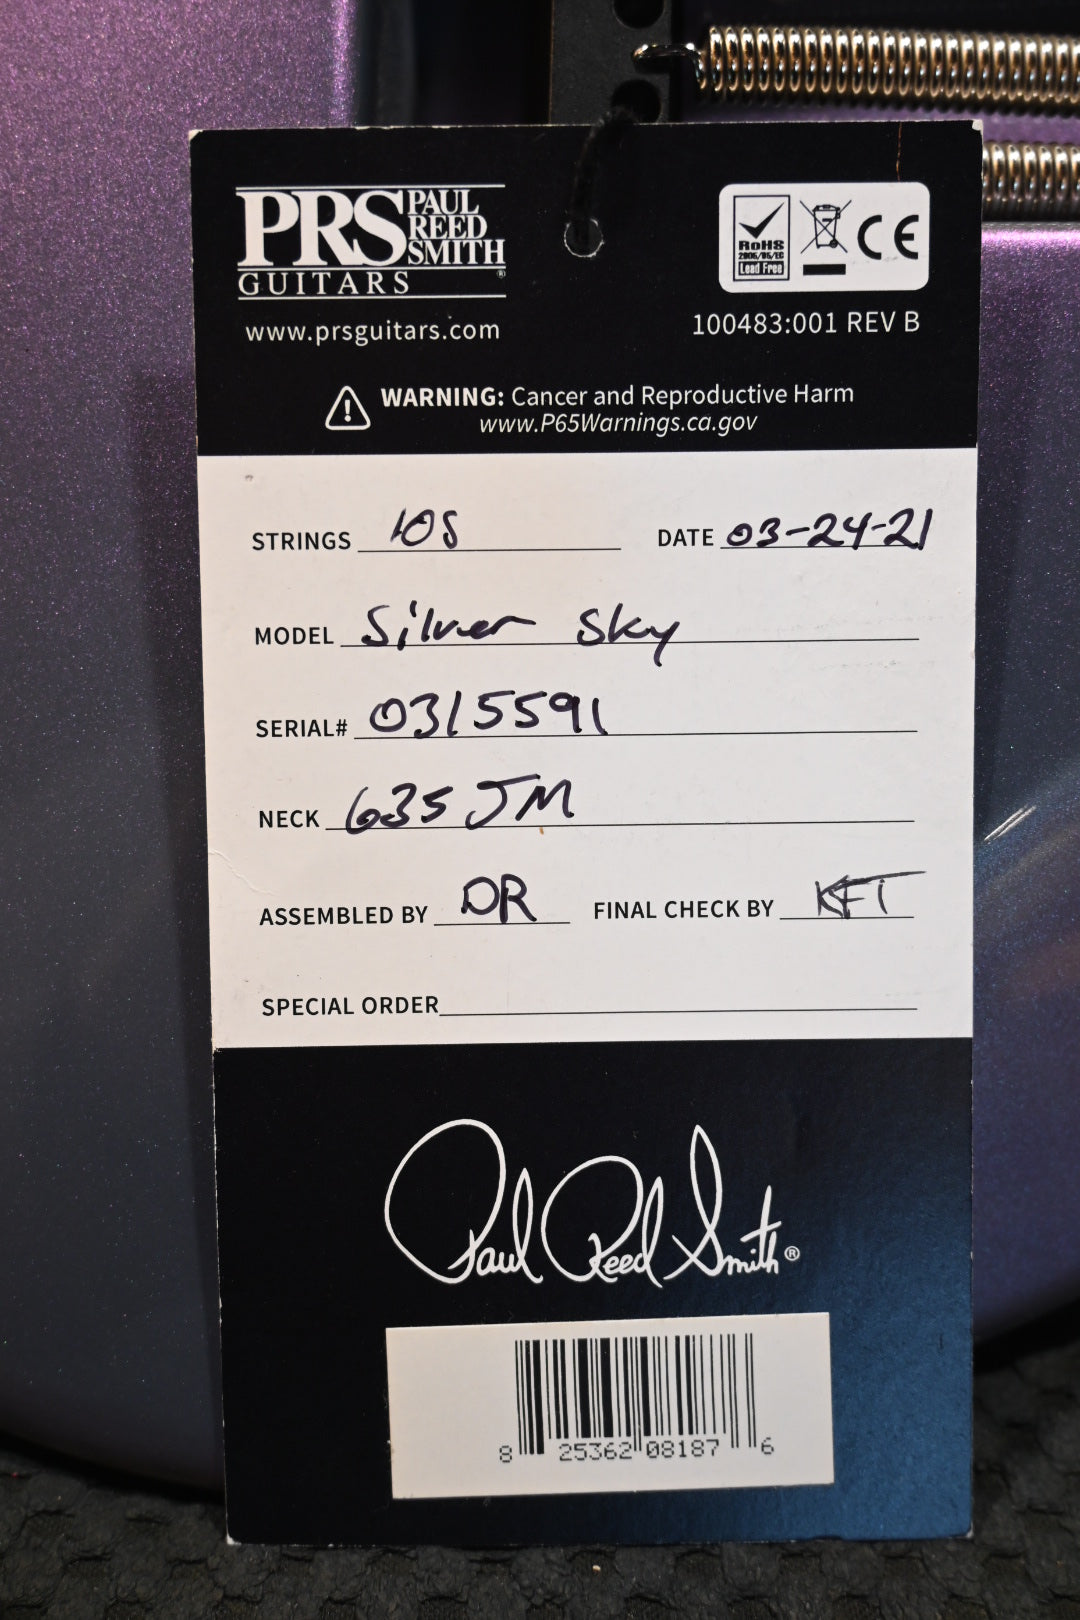 PRS PAUL REED SMITH
GUITARS ®
www.prsguitars.com
RoHS
2006/95/EC
Lead Free
CE
100483:001 REV B
WARNING: Cancer and Reproductive Harm
www.P65Warnings.ca.gov
STRINGS 10S DATE 03-24-21
MODEL Silver Sky
SERIAL# 0315591
NECK 635 JM
ASSEMBLED BY DR FINAL CHECK BY KFT
SPECIAL ORDER
Paul Reed Smith ®
8 25362 08187 6